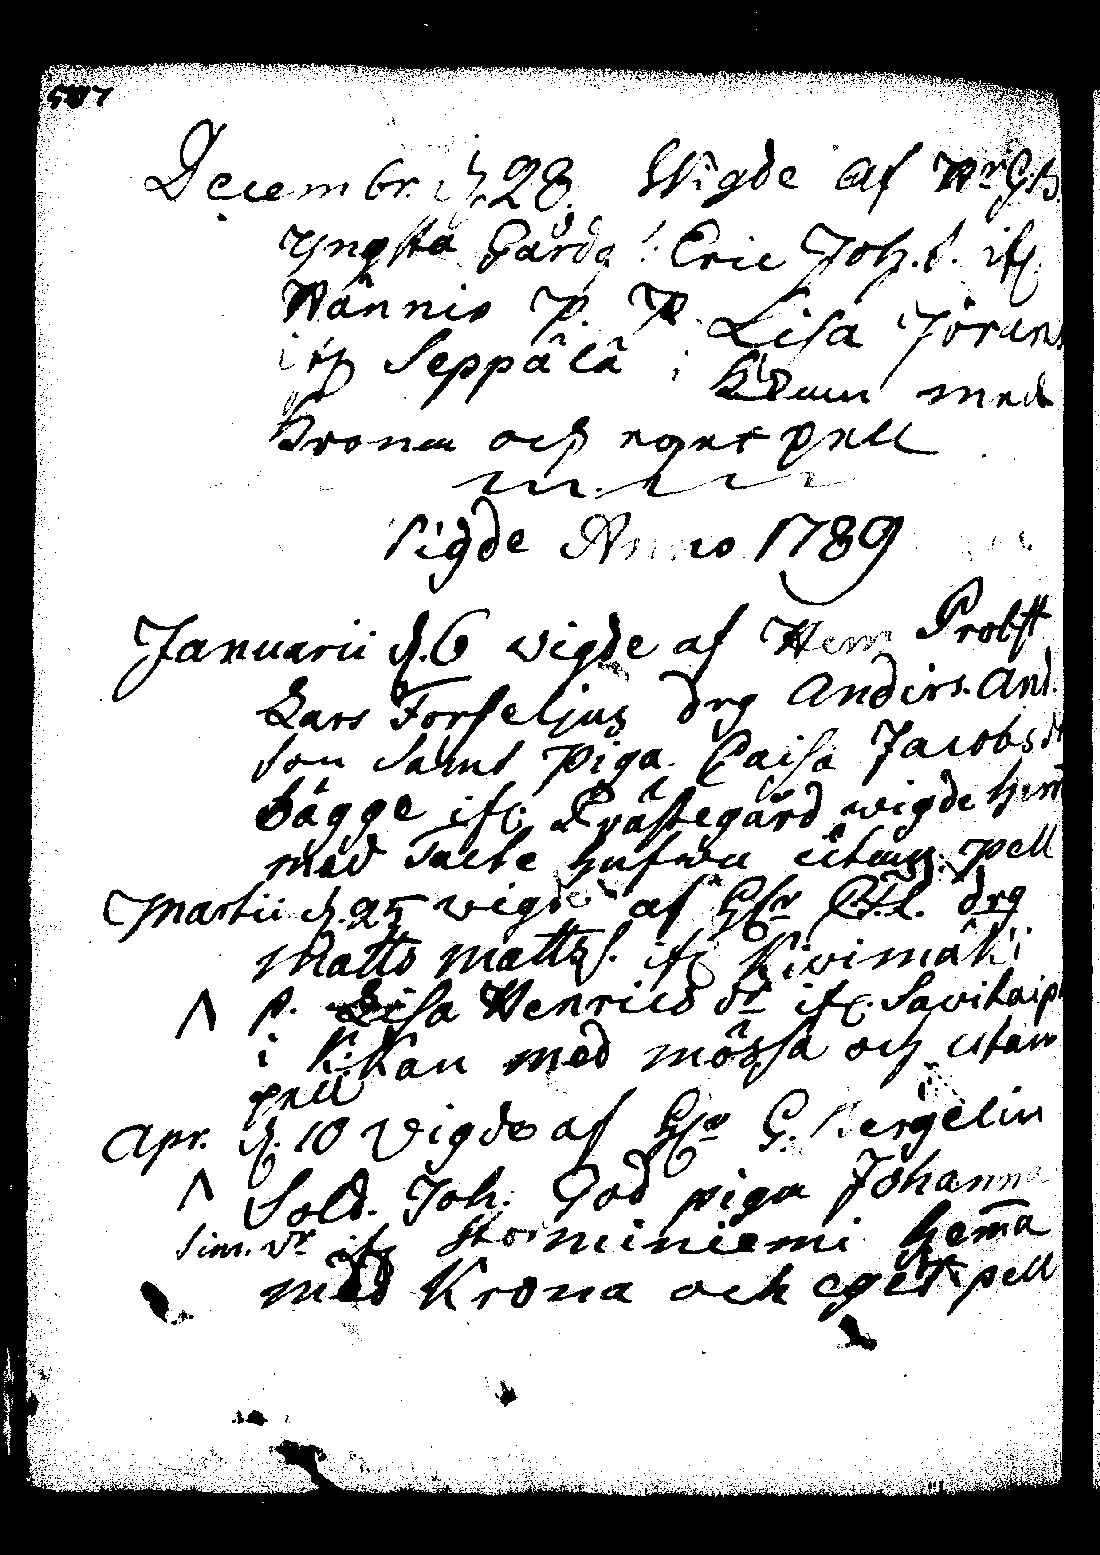 507
Decembr. d. 28. Wigde af
yngsta Gårdg Eric Joh. S. if.
Wännis P. P. Lisa Jörans
if Seppälä i med
Krona och eget pell
Vigde Anno 1789
Januarii d. 6 vigde af Herr Probst
Lars Forseljus drg Anders And.
son samt piga Caisa Jacobs dr
bägge if. Prästegård wigde hem
med Tacke hufwa utan pell
Martii d. 25 vigde af drg
Matts Matts S. if Kivimäki
P. Lisa Henrics dr if. Savitaip
i K:kan med mössa och utan
pell
Apr. d. 10 Vigde af G. Bergelin
Sold. Joh. God piga Johanna
Sim. dr if niemi hemma
med Krona och eget pell